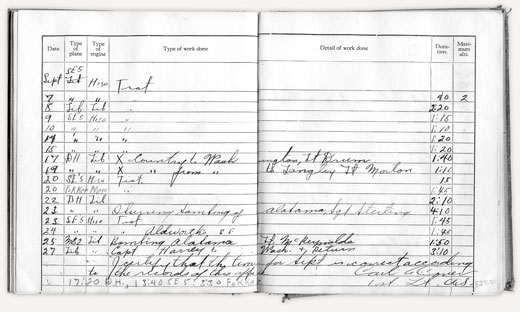 Date Type of plane Type of engine Type of work done Detail of work done Dura-tion. Maxi-mum alt.
Sept SE5 Hiso Test
7 " " 40 2
8 Lib Lib " 2:20
9 SE5 Hiso " 1:15
10 " " " 1:10
14 " " " 1:20
15 " " " 1:20
17 DH Lib X Country to Washington, Lt Drum 1:40
19 " " X " from " to Langley Lt Morton 1:15
20 SE5 Hiso Test 15
20 Fokker " 1:45
22 DH Lib " 2:10
23 " " Observing Bombing of Alabama, Sgt Sterling 4:10
23 SE5 Hiso Test 1:45
24 " " " SE 1:45
25 Lib Bombing Alabama Lt. McReynolds 1:50
27 Lib " Capt Harvey to Wash. & Return 3:10
I certify that the time for Sept is correct according
to the records of this office
Carl A Cover
1st Lt. A.S.
17:20 D.H., 13:40 SE5